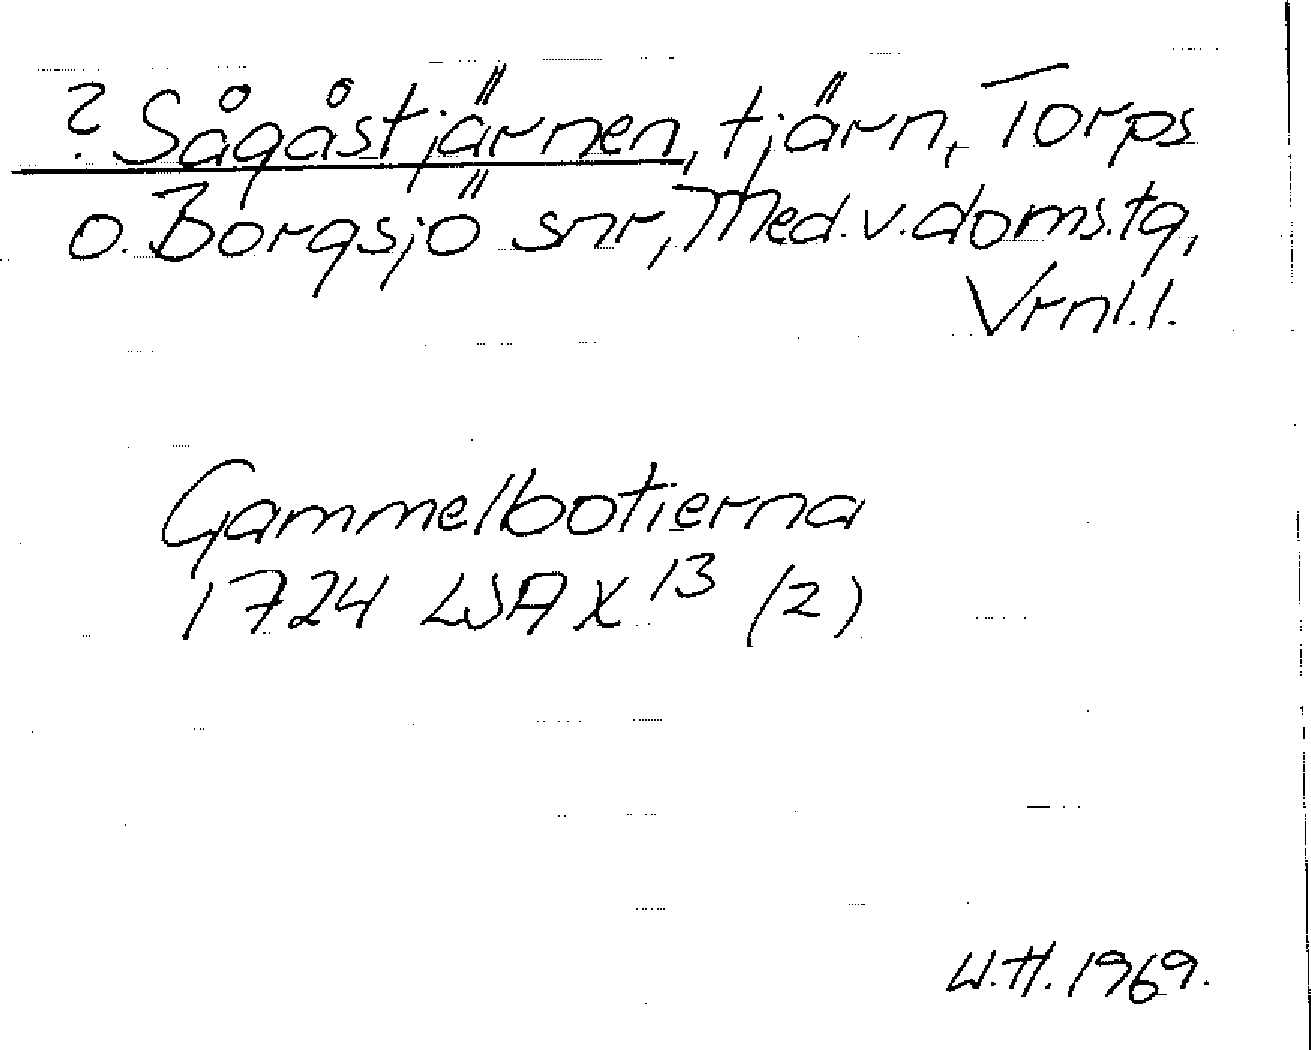 ? Sågåstjärnen, tjärn, Torps
o. Borgsjö snr, Med.v.doms.tg,
Vrnl.l.
Gammelbotierna
1724 LSA X 13 (2)
W.H. 1969.